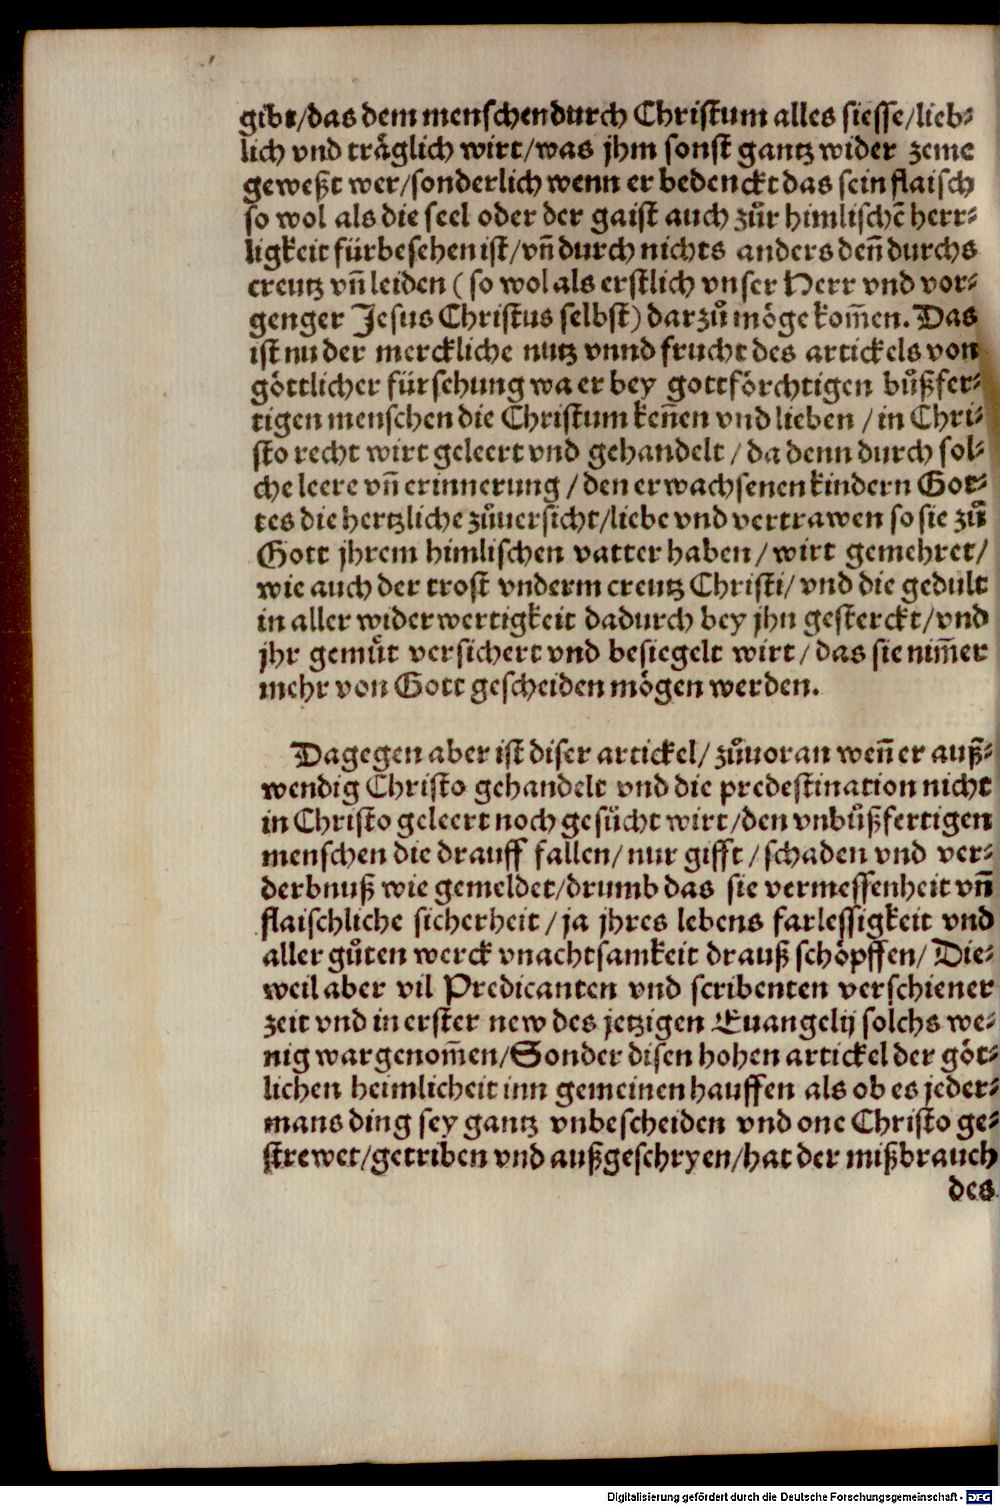 gibt/das dem menschen durch Christum alles siesse/lieb⸗
lich vnd träglich wirt/was jhm sonst gantz wider zeme
geweßt wer/sonderlich wenn er bedenckt das sein flaisch
so wol als die seel oder der gaist auch zůr himlischē herr⸗
ligkeit fürbesehen ist/vn̄ durch nichts anders den̄ durchs
creutz vn̄ leiden (so wol als erstlich vnser Herr vnd vor⸗
genger Jesus Christus selbst) darzů möge kom̄en. Das
ist nu der merckliche nutz vnnd frucht des artickels von
göttlicher fürsehung wa er bey gottförchtigen bůßfer⸗
tigen menschen die Christum ken̄en vnd lieben /in Chri⸗
sto recht wirt geleert vnd gehandelt / da denn durch sol⸗
che leere vn̄ erinnerung / den erwachsenen kindern Got⸗
tes die hertzliche zůuersicht/liebe vnd vertrawen so sie zů
Gott jhrem himlischen vatter haben/ wirt gemehret/
wie auch der trost vnderm creutz Christi/ vnd die gedult
in aller widerwertigkeit dadurch bey jhn gesterckt/vnd
jhr gemůt versichert vnd besiegelt wirt / das sie nim̄er
mehr von Gott gescheiden mögen werden.
Dagegen aber ist diser artickel/ zůuoran wen̄ er auß⸗
wendig Christo gehandelt vnd die predestination nicht
in Christo geleert noch gesůcht wirt/den vnbůßfertigen
menschen die drauff fallen/ nur gifft / schaden vnd ver⸗
derbnuß wie gemeldet/drumb das sie vermessenheit vn̄
flaischliche sicherheit / ja jhres lebens farlessigkeit vnd
aller gůten werck vnachtsamkeit drauß schöpffen/ Die⸗
weil aber vil Predicanten vnd scribenten verschiener
zeit vnd in erster new des jetzigen Euangelij solchs we⸗
nig war genom̄en/Sonder disen hohen artickel der göt⸗
lichen heimlicheit inn gemeinen hauffen als ob es jeder⸗
mans ding sey gantz vnbescheiden vnd one Christo ge⸗
strewet/getriben vnd außgeschryen/hat der mißbrauch
des
Digitalisierung gefördert durch die Deutsche Forschungsgemeinschaft - DFG